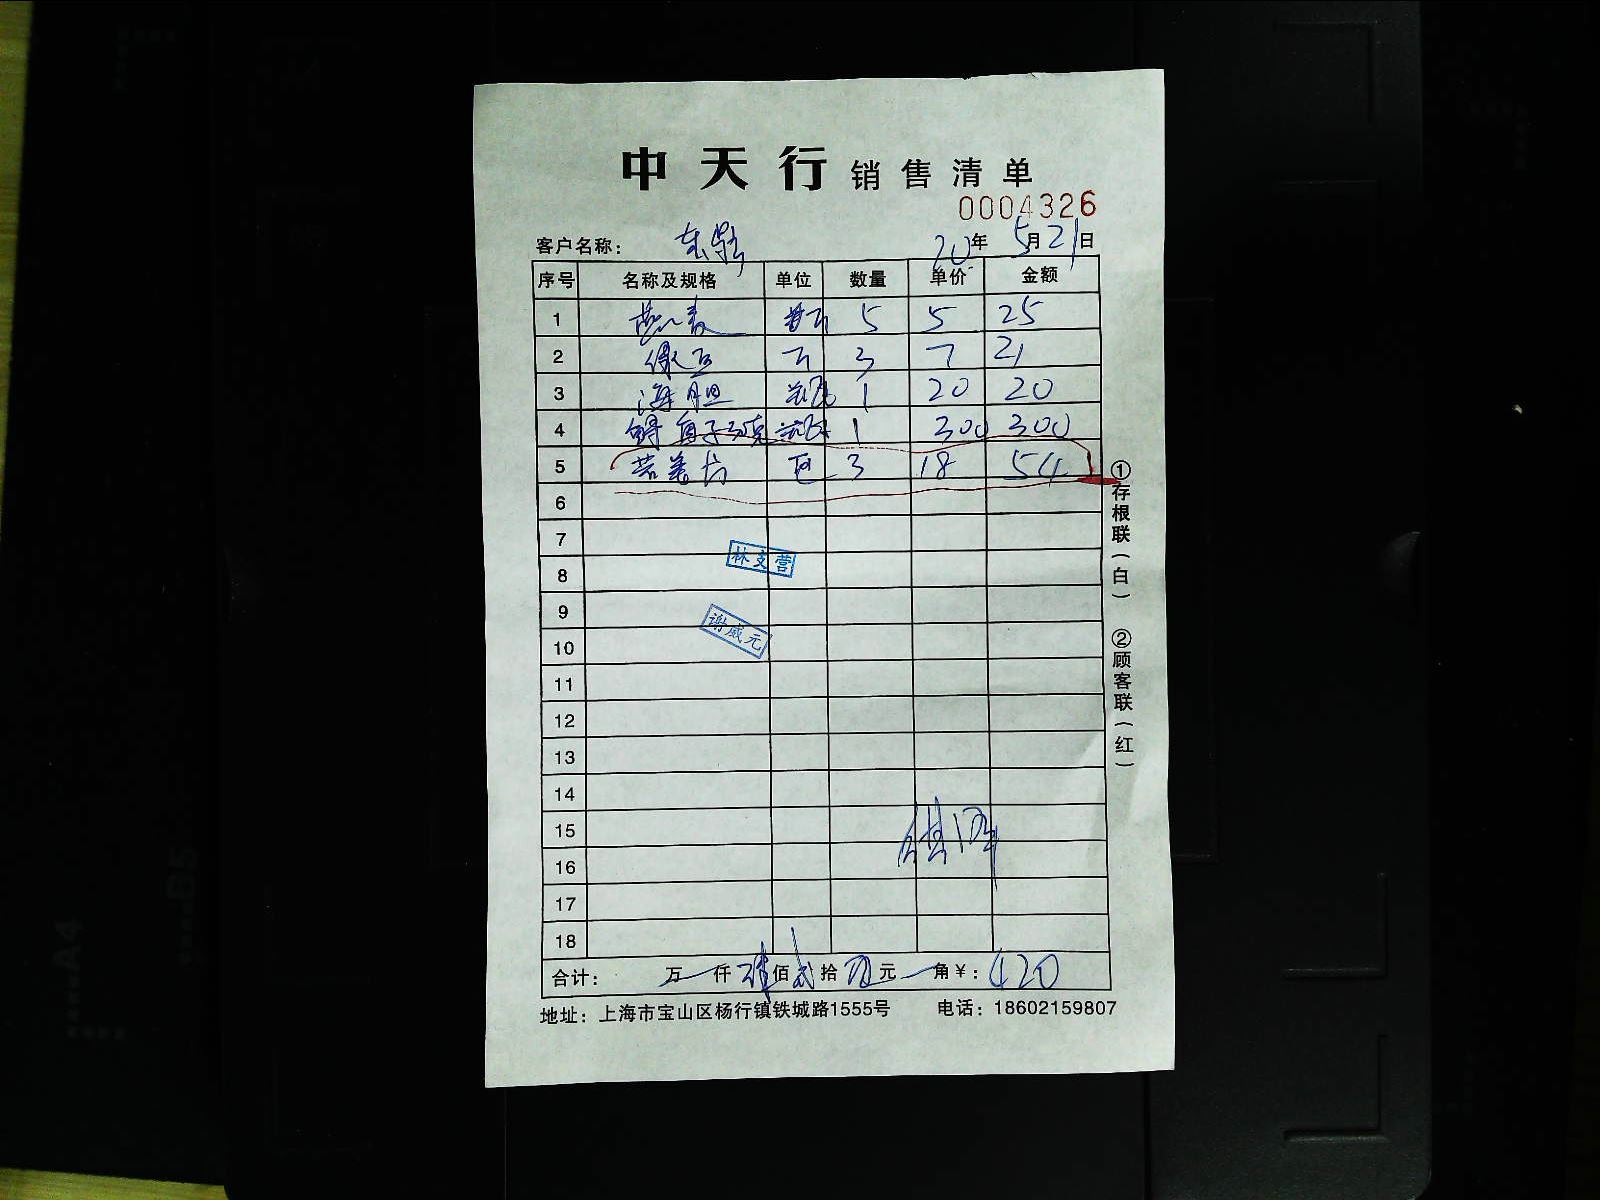 中天行 销售清单
0004326
客户名称： 20年 5月21日
序号 名称及规格 单位 数量 单价 金额
1 5 5 25
2 3 7 21
3 海胆 1 20 20
4 1 300 300
5 包 3 18 54
6
7
林支营
8
9
谢威元
10
11
12
13
14
15
16
17
18
合计： 万 仟 佰 贰 拾 元 角￥：420
地址：上海市宝山区杨行镇铁城路1555号 电话：18602159807
①存根联（白） ②顾客联（红）